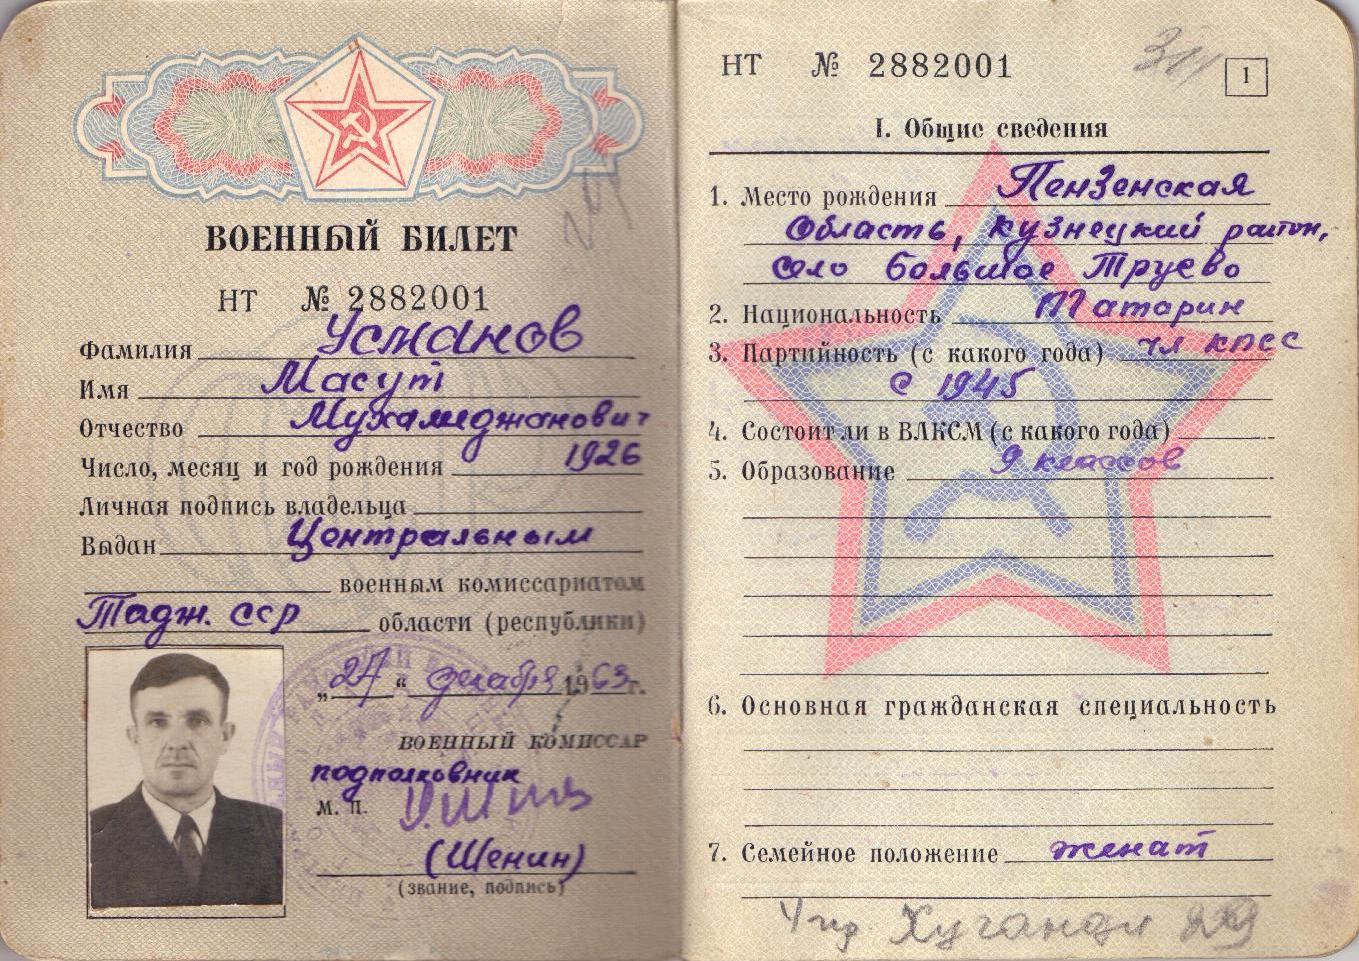 ВОЕННЫЙ БИЛЕТ
НТ № 2882001
Фамилия Усманов
Имя Масут
Отчество Мухамеджанович
Число, месяц и год рождения 1926
Личная подпись владельца
Выдан Центральным
военным комиссариатом
Тадж. ССР области (республики)
„27“ декабря 1963г.
ВОЕННЫЙ КОМИССАР
подполковник
М. П.
(Шенин)
(звание, подпись)
НТ № 2882001
1
I. Общие сведения
1. Место рождения Пензенская
область, Кузнецкий район,
село Большое Труево
2. Национальность Татарин
3. Партийность (с какого года) чл КПСС
с 1945
4. Состоит ли в ВЛКСМ (с какого года)
5. Образование 9 классов
6. Основная гражданская специальность
7. Семейное положение женат